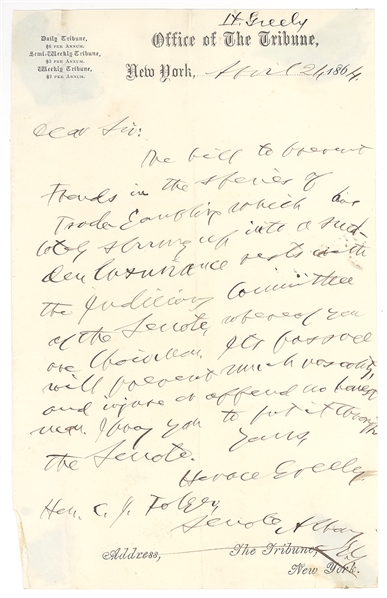 H. Greely
Daily Tribune,
$8 per Annum.
Semi-Weekly Tribune,
$3 per Annum.
Weekly Tribune,
$2 per Annum.
Office of The Tribune,
New York, April 2, 1864.
Dear Sir:
The bill to prevent
Frauds in the species of
Trade Gambling which has
lately sprung up into a sud-
den Insurance rests with
the Judiciary Committee
of the Senate, whereof you
are Chairman. Its passage
will prevent much rascality,
and injure or offend no honest
man. I pray you to put it through
the Senate.
Yours,
Horace Greeley.
Hon. C. J. Folger,
Senate, Albany
Address, The Tribune,
New York.